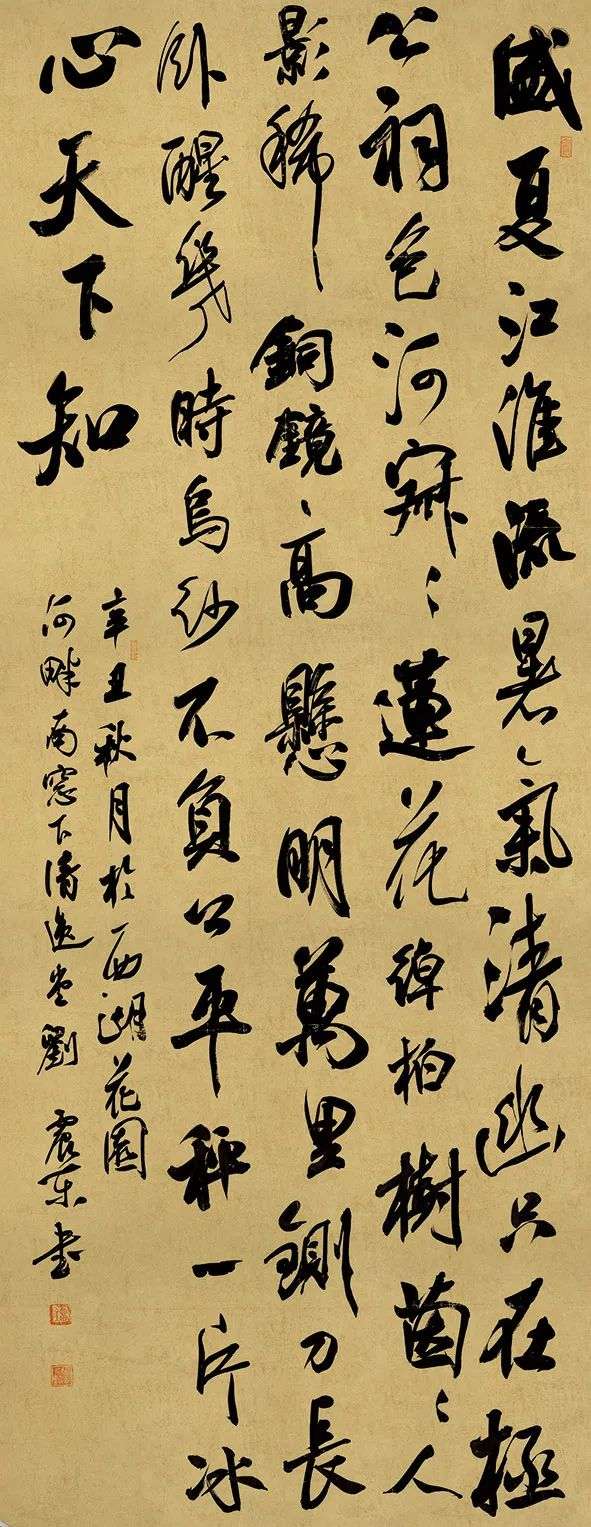 盛夏江淮流暑氣清幽只在拯
公祠包河寂〻蓮花綽柏樹茵〻人
影稀銅鏡高懸明萬里鍘刀長
臥醒幾時烏紗不負公平秤一片冰
心天下知
辛丑秋月於西湖花園
河畔南窓下逸堂劉震東書